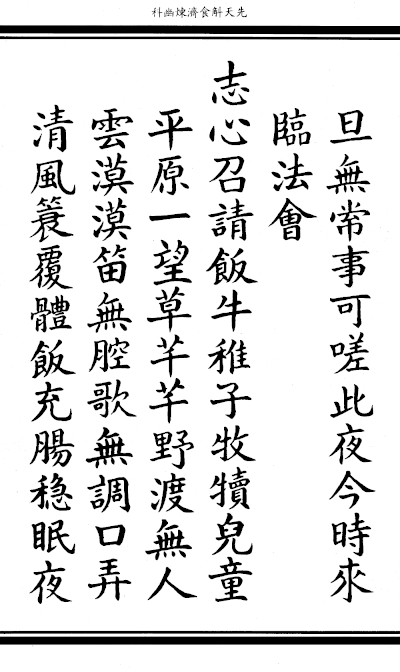 先天斛食濟煉幽科
旦無常事可嗟此夜今時來
臨法會
志心召請飯牛稚子牧犢兒童
平原一望草芊芊野渡無人
雲漠漠笛無腔歌無調口弄
清風簑覆體飯充腸稳眠夜